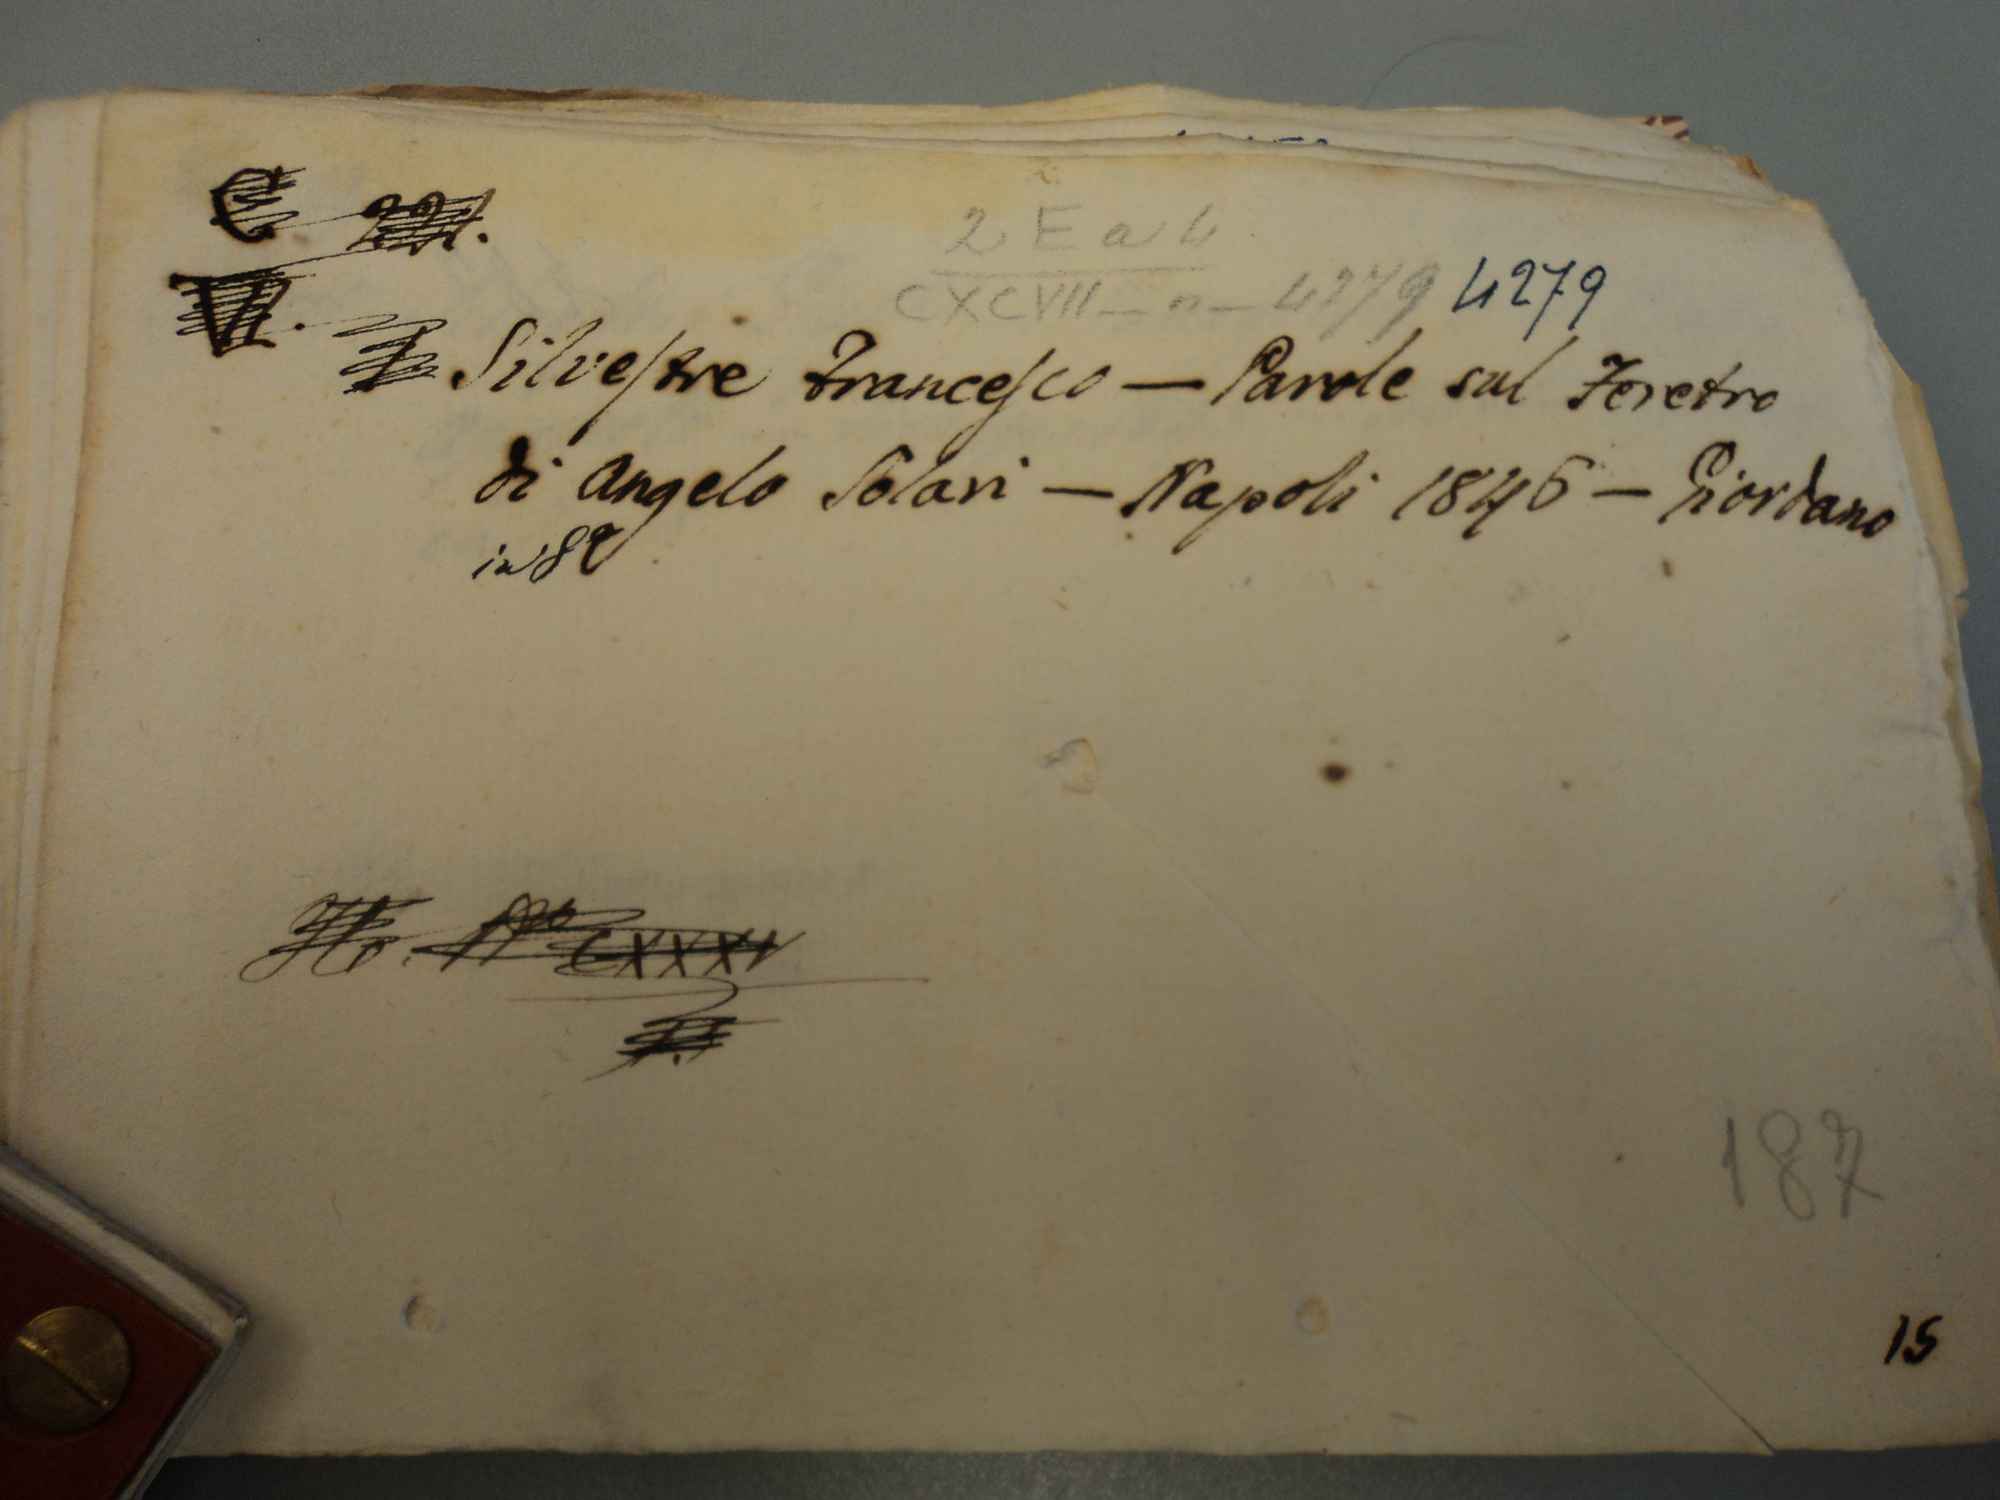 2 E a 4
CXCVII — n — 4279 4279
Silvestre Francesco — Parole sul Feretro
di Angelo Solari — Napoli 1846 — Giordano
in 8º
CXXXV
187
15